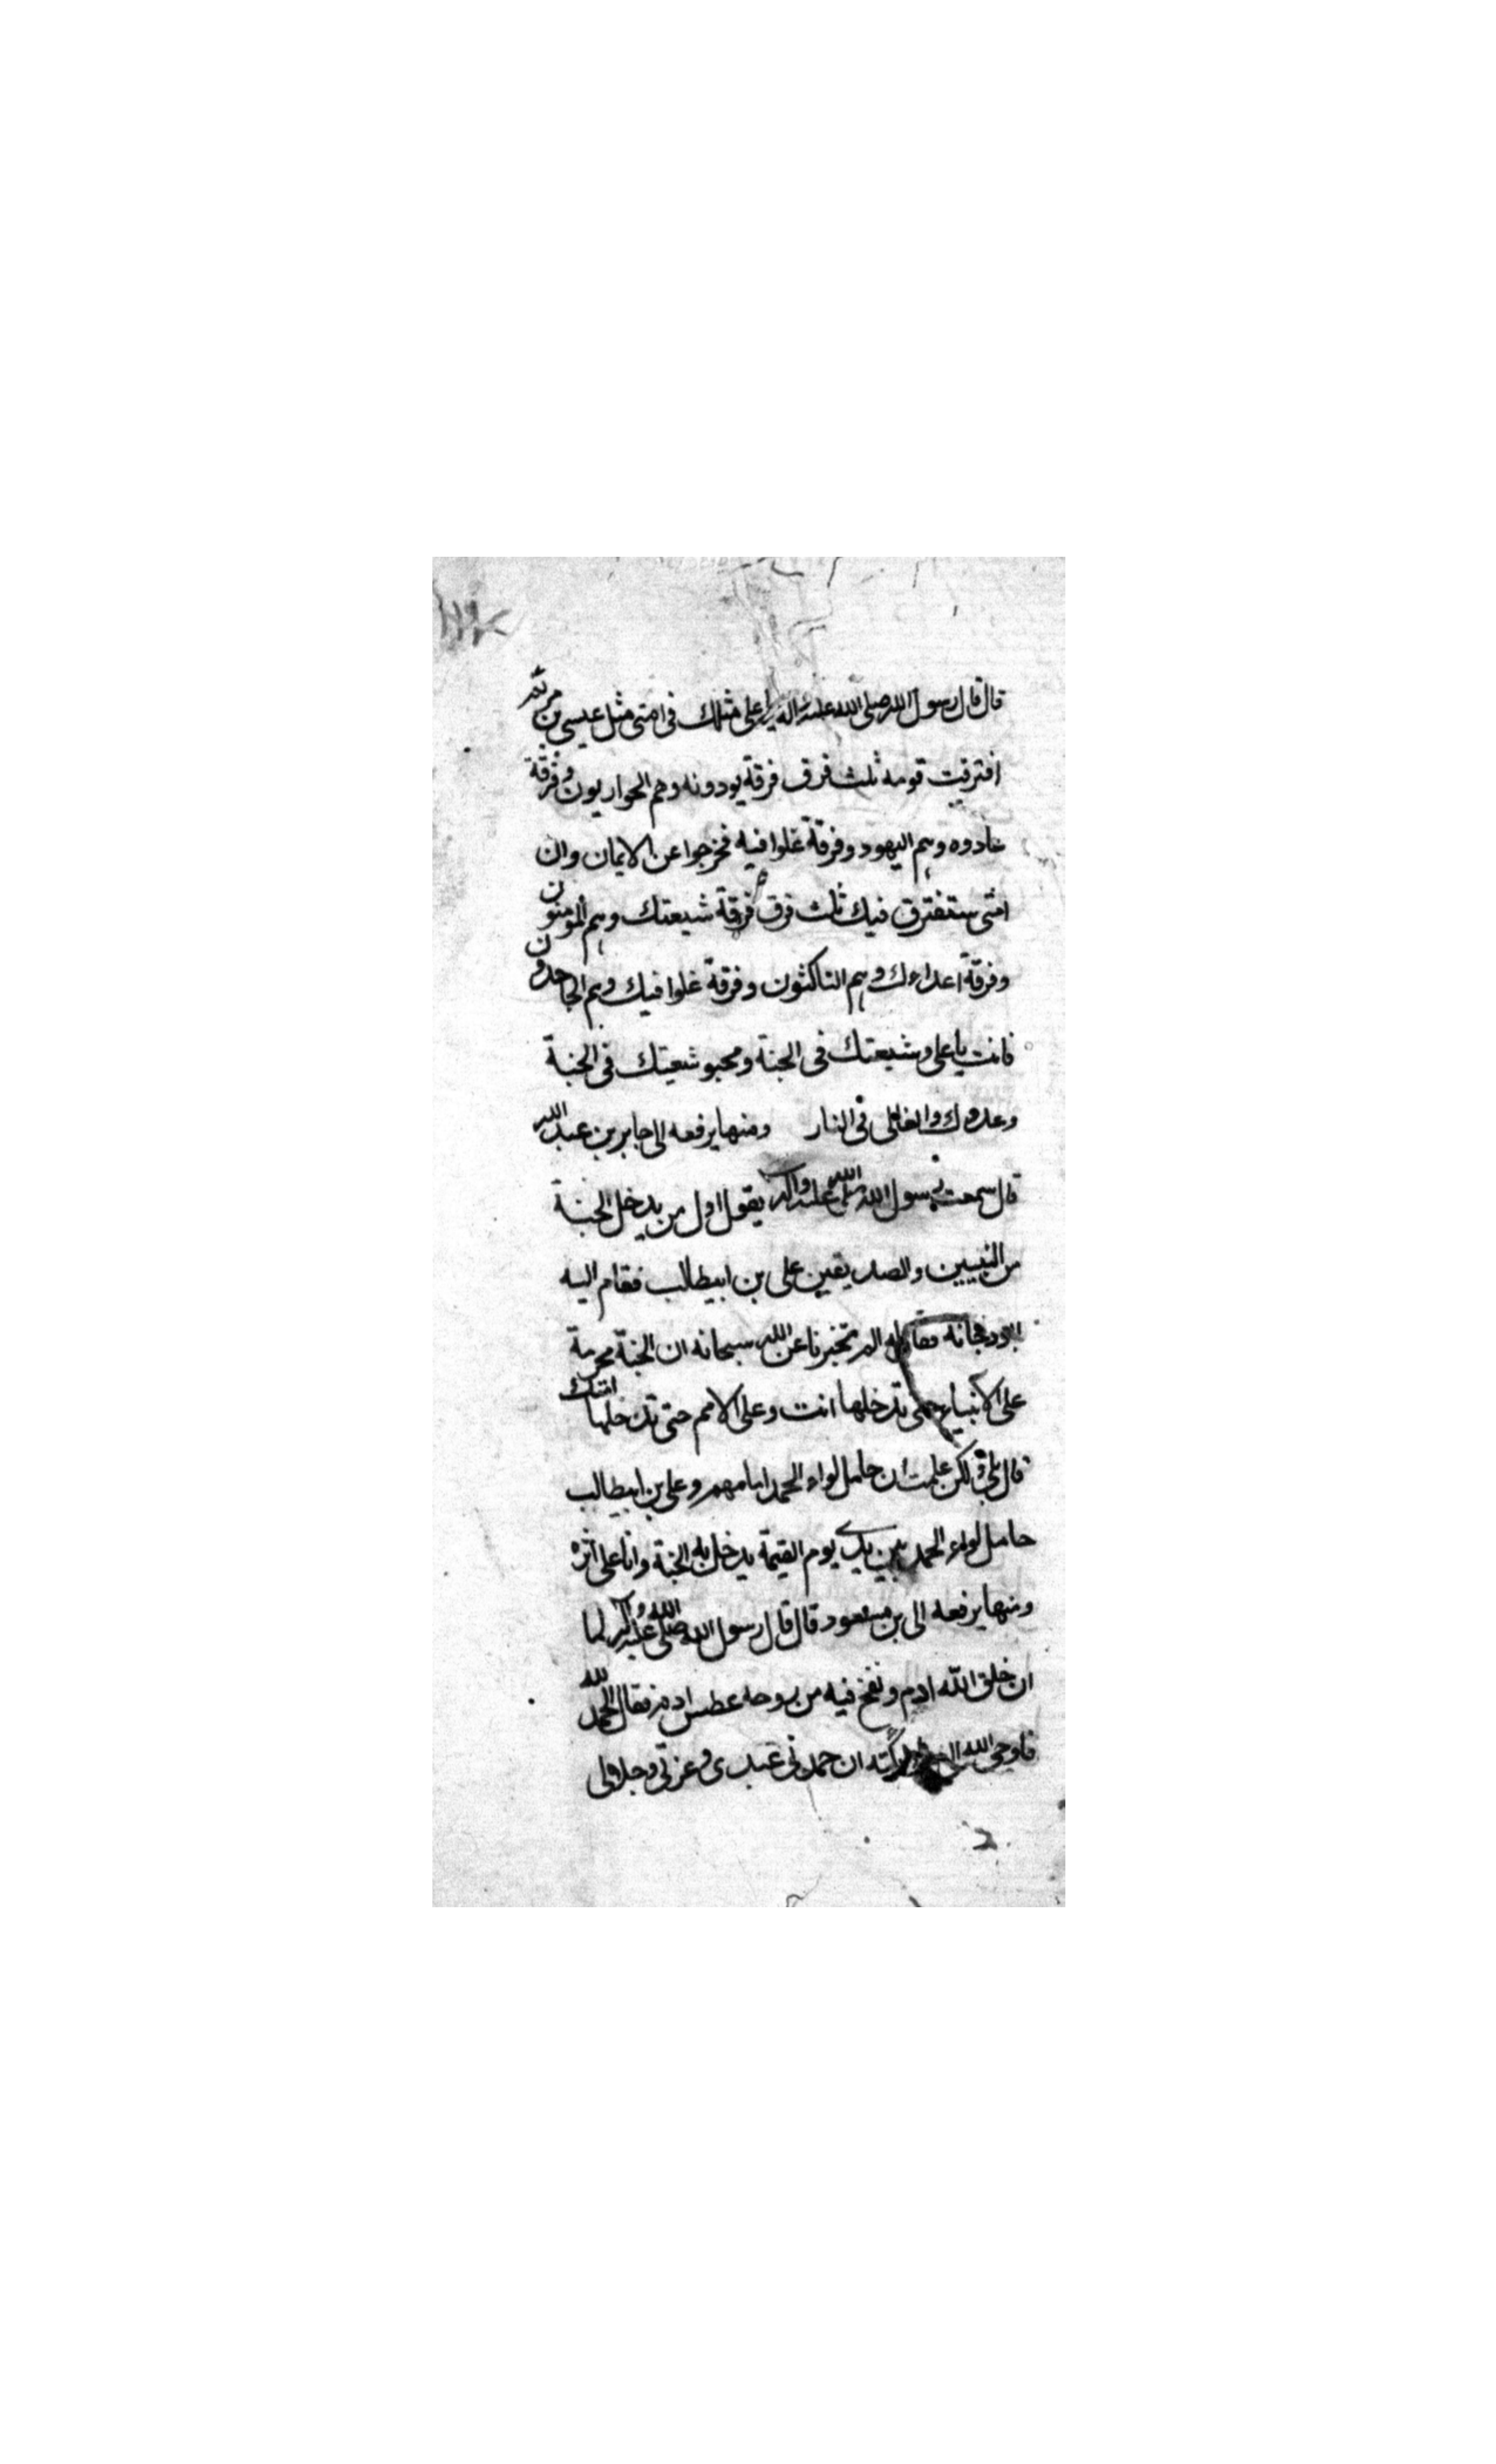 قال قال رسول الله صلى الله عليه واله يا على مثلك فى امتى مثل عيسى بن مريم
افترقت قومه ثلث فرق فرقة يودونه وهم الحواريون وفرقة
عادوه وهم اليهود وفرقة غلوا فيه فخرجوا عن الايمان وان
امتى ستفترق فيك ثلث فرق فرقة شيعتك وهم المومنون
وفرقة اعداءك وهم الناكثون وفرقة غلوا فيك وهم الجاحدون
فانت يا على وشيعتك فى الجنة ومحبو شيعتك فى الجنة
وعدوك والغالى فى النار ومنها يرفعه الى جابر بن عبد الله
قال سمعت رسول الله صلى الله عليه واله يقول اول من يدخل الجنة
من النبيين والصديقين على بن ابيطالب فقام اليه
ابودجانه فقال له الم تخبرنا عن الله سبحانه ان الجنة محرمة
على الانبياء حتى تدخلها انت وعلى الامم حتى تدخلها امتك
قال بلى ولكن علمت ان حامل لواء الحمد امامهم وعلى بن ابيطالب
حامل لواء الحمد بين يدى يوم القيمة يدخل به الجنة وانا على اثره
ومنها يرفعه الى بن مسعود قال قال رسول الله صلى الله عليه واله لما
ان خلق الله ادم ونفخ فيه من روحه عطس ادم فقال الحمد لله
فاوحى الله ان حمدنى عبدى وعزتى وجلالى